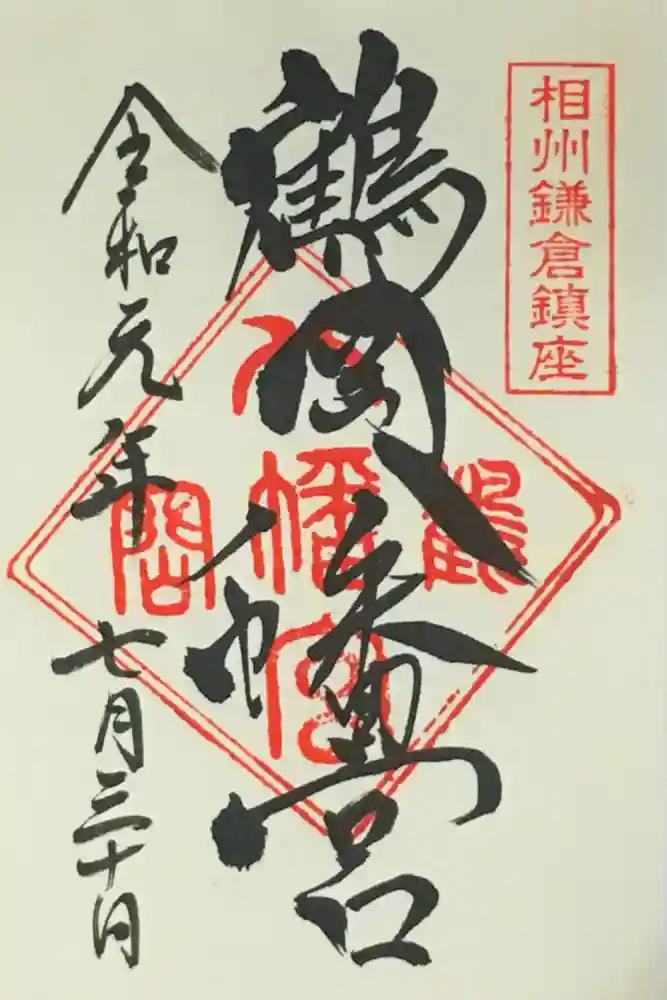 相州鎌倉鎮座
鶴岡八幡宮
鶴岡
八幡宮
令和元年七月三十日